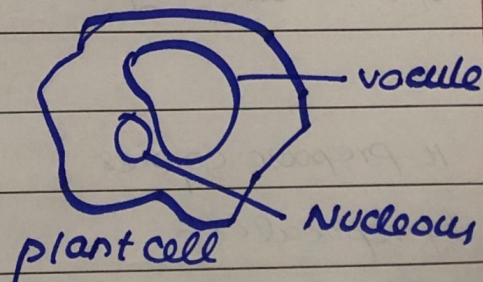 vocule
Nucleous
plant cell